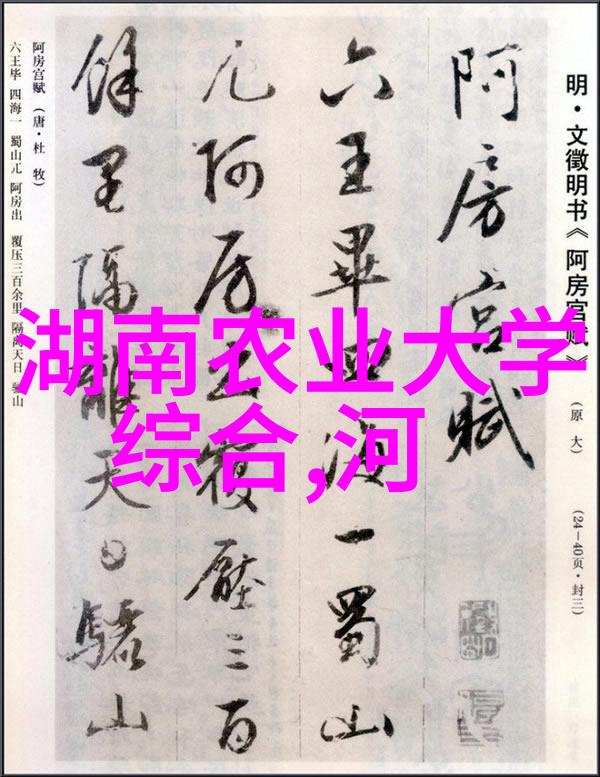 明·文徵明书《阿房宫赋》(原大) (24—40页·封三)
阿房宫賦
六王畢四海一蜀山
兀阿房出覆壓三百
餘里隔離天日驪山
阿房宫赋(唐·杜牧)
六王毕 四海一 蜀山兀 阿房出 覆压三百余里 隔离天日 骊山
湖南农业大学
综合,河